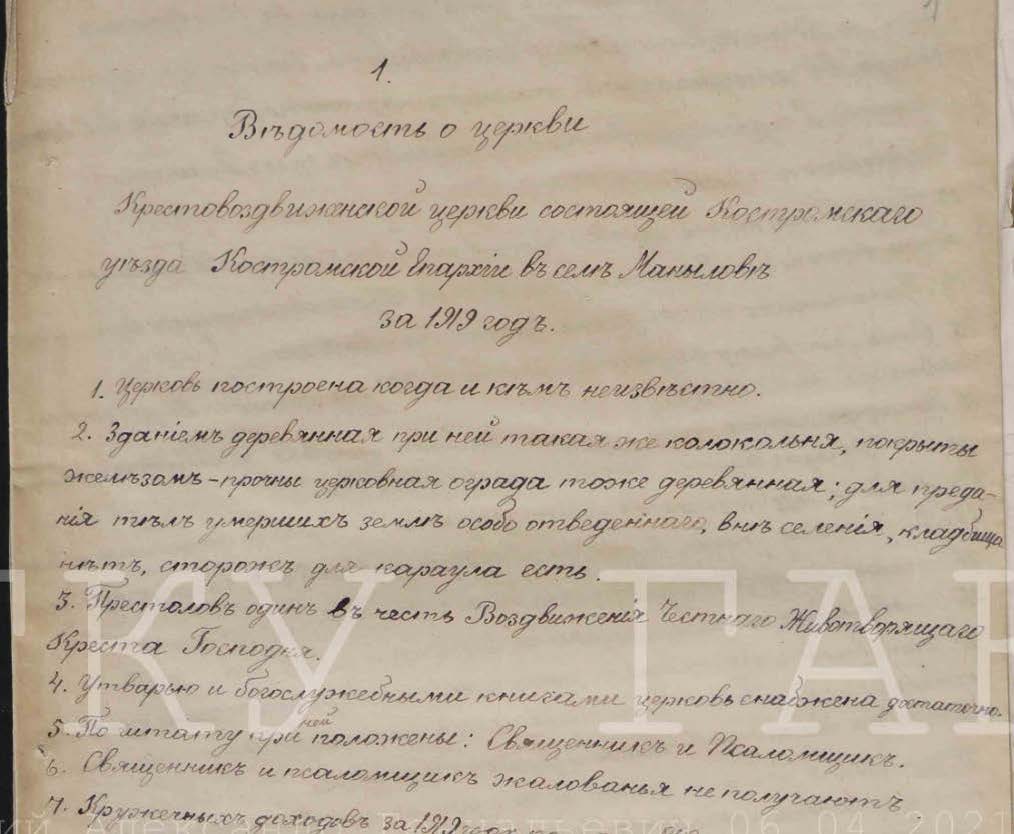 1
1.
Вѣдомость о церкви
Крестовоздвиженской церкви состоящей Костромскаго
уѣзда Костромской Епархіи въ селѣ Маныловѣ
за 1919 годъ.
1. Церковь построена когда и кѣмъ неизвѣстно.
2. Зданіемъ деревянная при ней такая же колокольня, покрыты
желѣзомъ - прочны церковная ограда тоже деревянная; для преда-
нія тѣлъ умершихъ землѣ особо отведеннаго, внѣ селенія, кладбища
нѣтъ, сторожъ для караула есть.
3. Престоловъ одинъ въ честь Воздвиженія Честнаго Животворящаго
Креста Господня.
4. Утварью и богослужебными книгами церковь снабжена достаточно.
5. По штату при ней положены: Священникъ и Псаломщикъ.
6. Священникъ и псаломщикъ жалованья не получаютъ
7. Кружечныхъ доходовъ за 1919
ГКУ ГА
06 04 2021